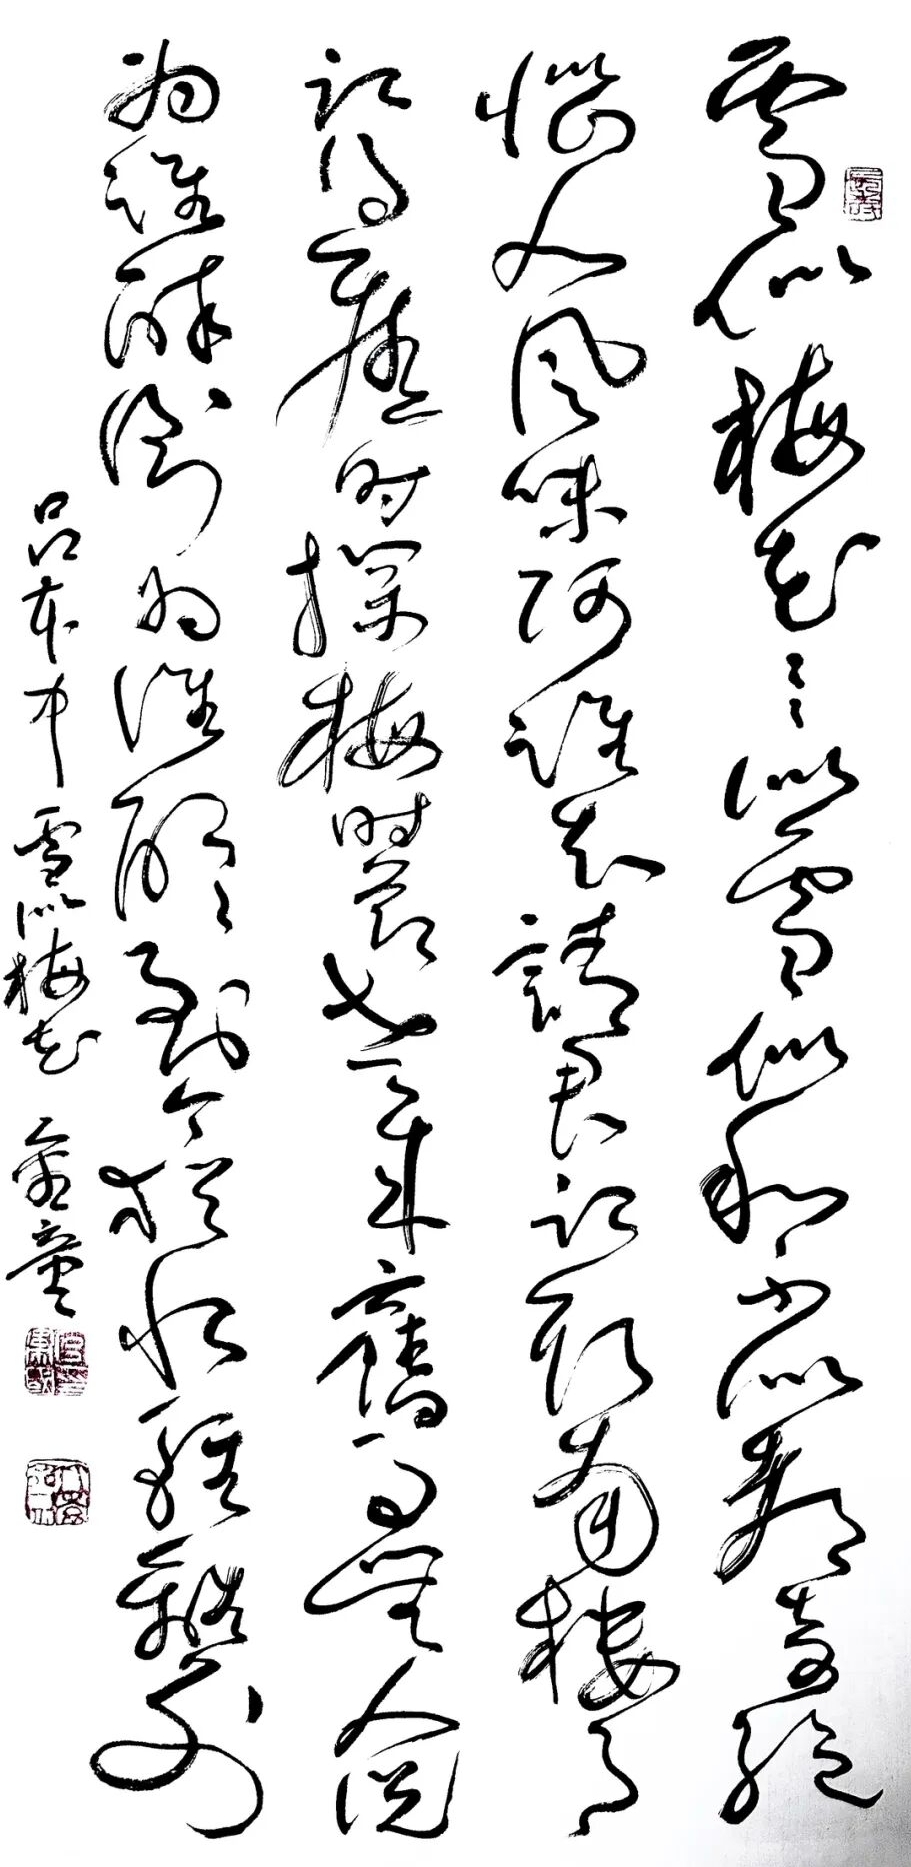 雪似梅花々々似雪似和不似都奇绝
恼人风味阿谁知請君记取南楼月
记得舊时探梅时节老来舊事無人说
为谁醉倒为谁醒到今犹恨轻離别
吕本中雪似梅花